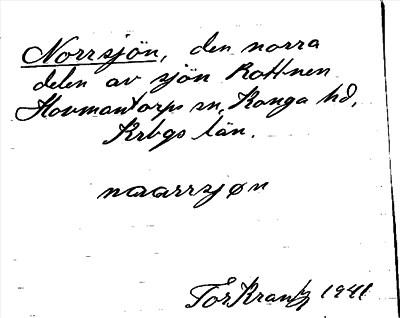 Norrsjön, den norra
delen av sjön Rottnen
Hovmantorps sn, Konga hd,
Krbgs län.
naarrsjøn
Tor Krantz 1941